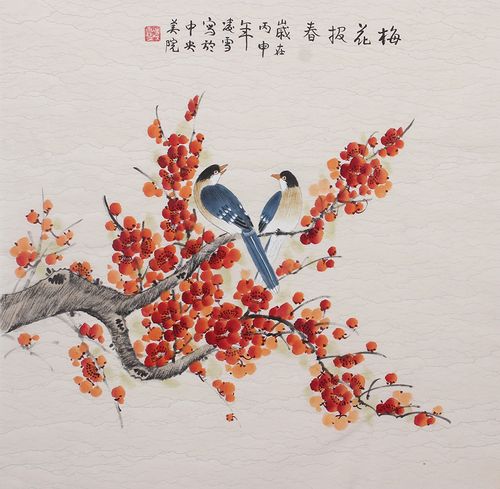 梅花报春
歲在
丙申
年
凌雪
寫於
中央
美院